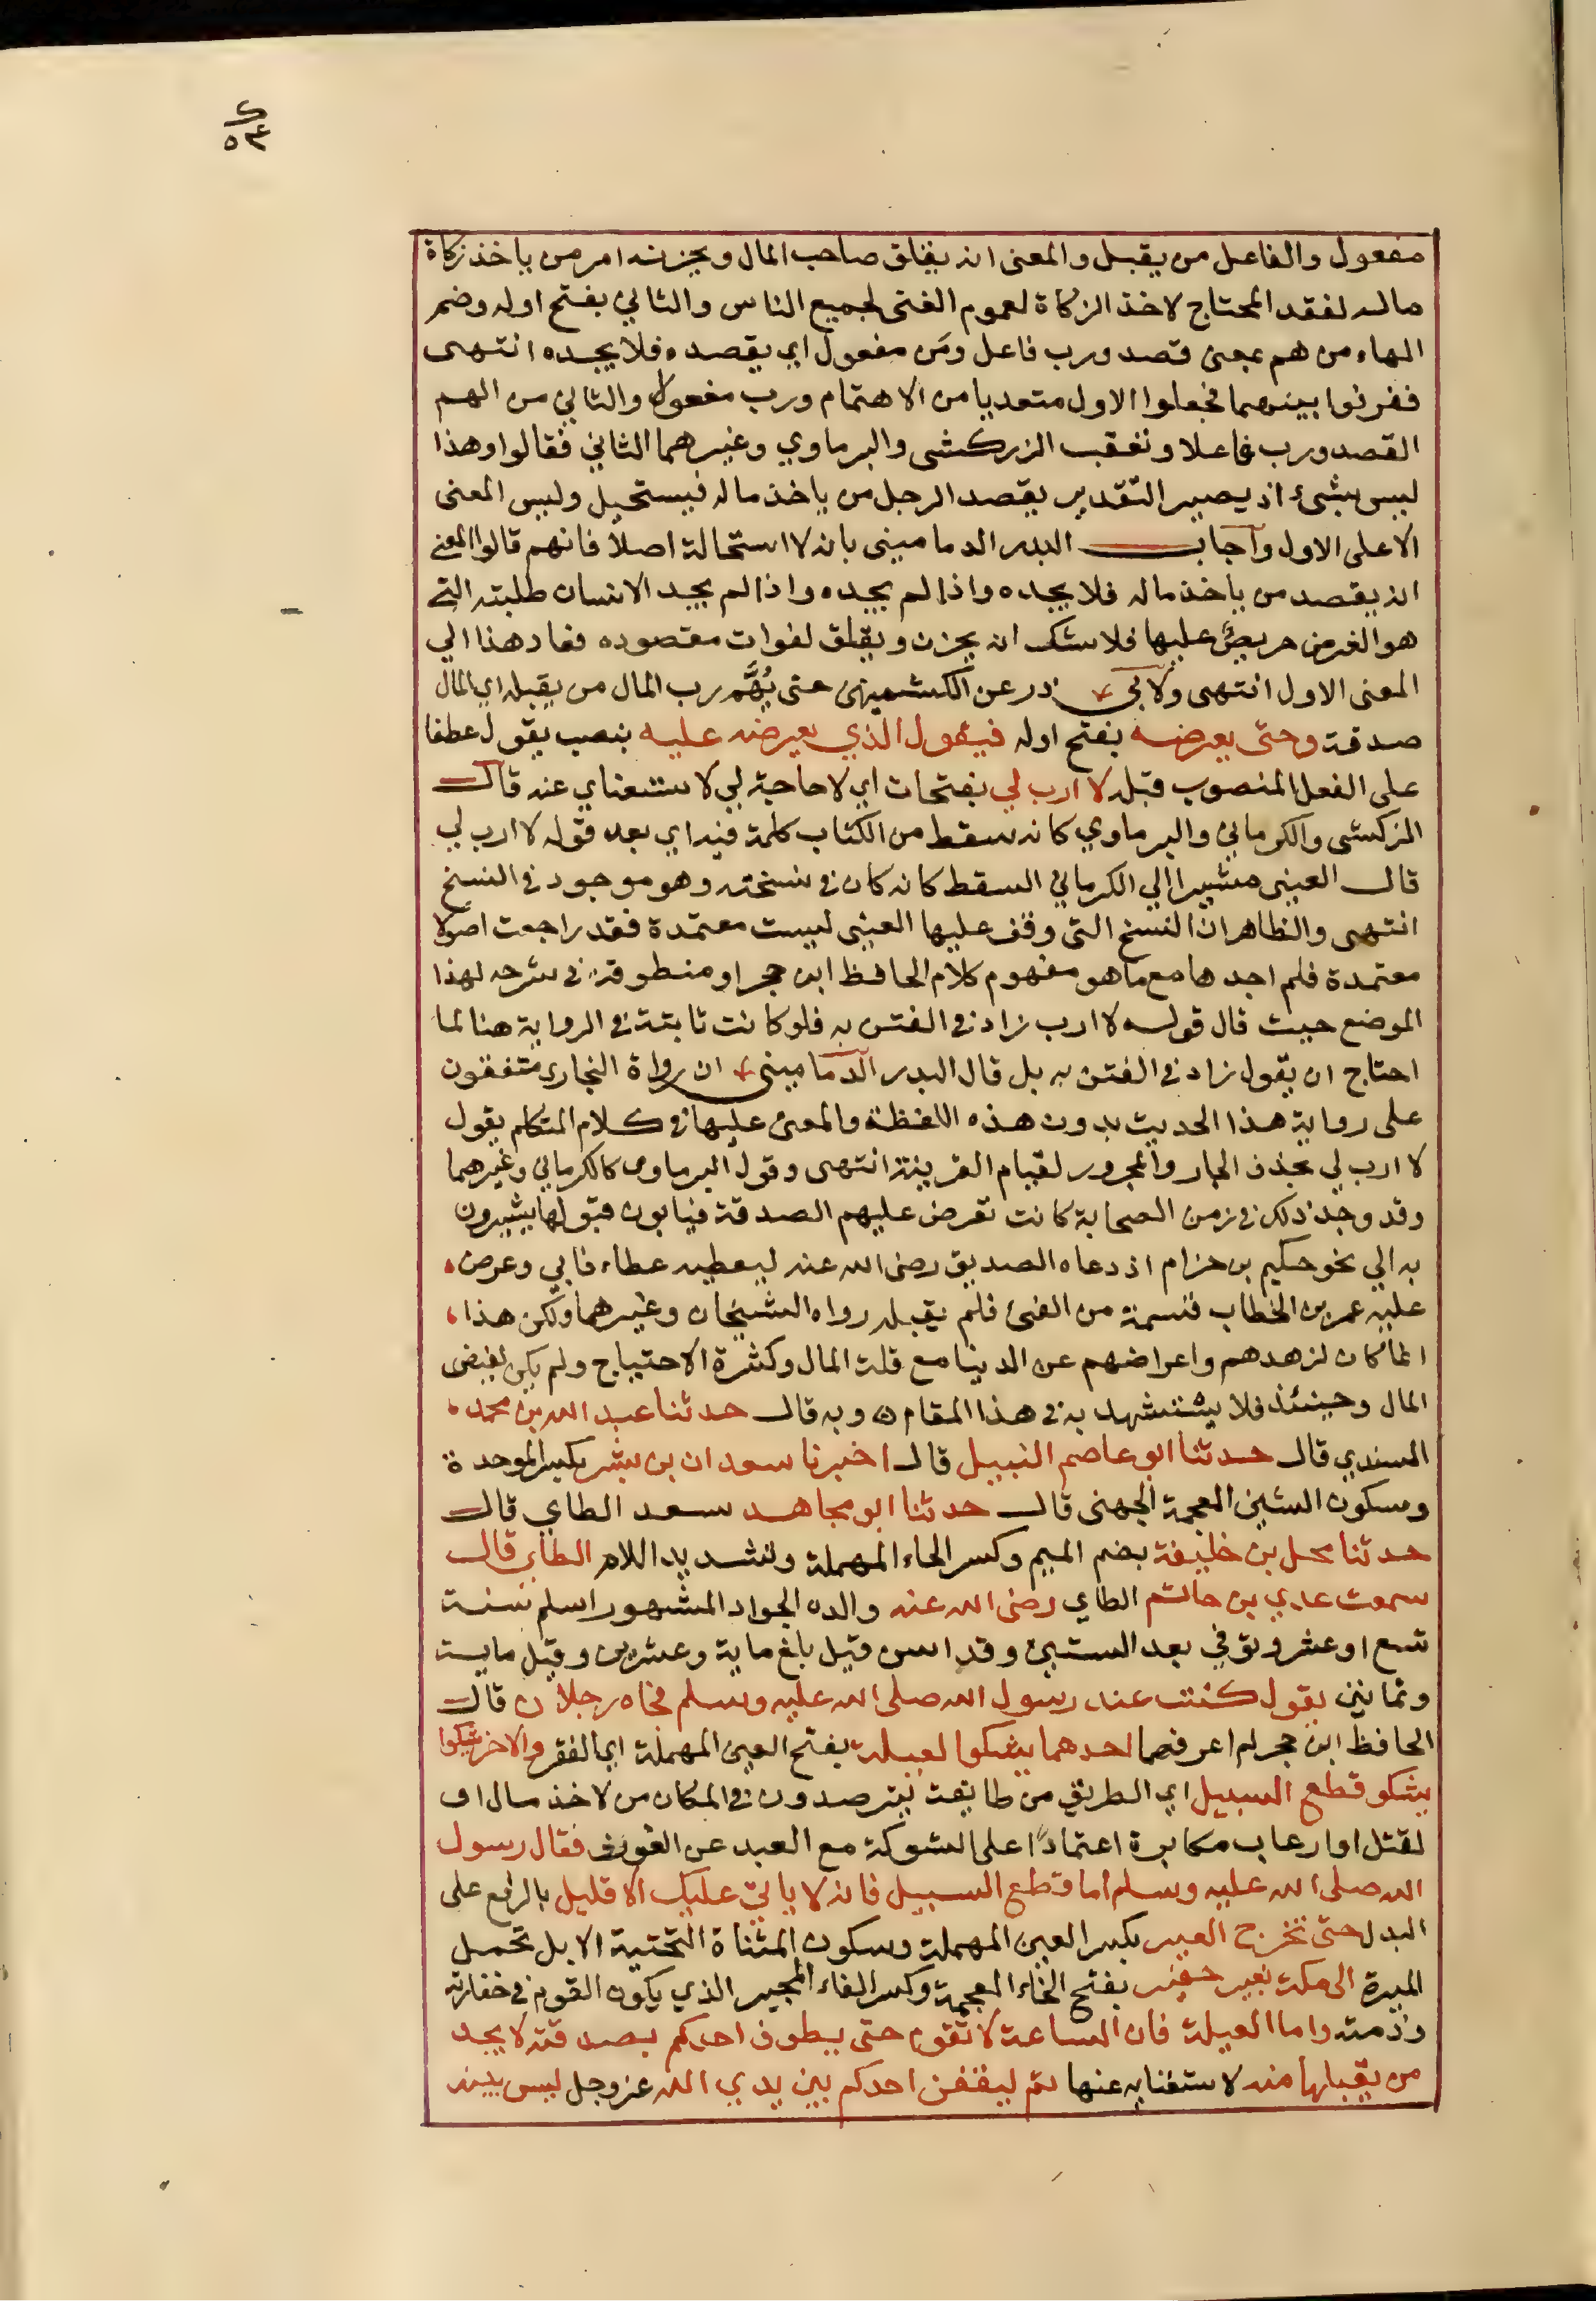 مفعول والفاعل من يقبل والمعنى انه يقلق صاحب المال ويحزنه امر من ياخذ زكاة
ماله لفقد المحتاج لاخذ الزكاة لعموم الغنى لجميع الناس والثاني بفتح اوله وضم
الهاء من هم بمعنى قصد ورب فاعل ومَن مفعول اي يقصده فلا يجده انتهى
ففرقوا بينهما فجعلوا الاول متعديا من الاهتمام ورب مفعولا والثاني من الهم
القصد ورب فاعلا وتعقب الزركشى والبرماوي وغيرهما الثاني فقالوا وهذا
ليس بشىء اذ يصير التقدير يقصد الرجل من ياخذ ماله فيستحيل وليس المعنى
الا على الاول واجاب البدر الدماميني بانه لا استحالة اصلا فانهم قالوا المعنى
انه يقصد من ياخذ ماله فلا يجده واذا لم يجده واذا لم يجد الانسان طلبته التي
هو الغرض حريصٌ عليها فلا شك انه يحزن ويقلق لفوات مقصوده فعاد هذا الي
المعنى الاول انتهى ولابي ذر عن الكشميهنى حتى يُهَّم رب المال من يقبله اي المال
صدقة وحتى يعرضه بفتح اوله فيقول الذي يعرضه عليه بنصب يقول عطفا
على الفعل المنصوب قبله لا ارب لي بفتحات اي لا حاجة لي لاستغناي عنه قال
الزركشى والكرماني والبرماوي كانه سقط من الكتاب كلمة فيه اي بعد قوله لا ارب لي
قال العينى مشيرا الي الكرماني السقط كانه كان في نسخته وهو موجود في النسخ
انتهى والظاهر ان النسخ التى وقف عليها العينى ليست معتمدة فقد راجعت اصولا
معتمدة فلم اجدها مع ما هو مفهوم كلام الحافظ ابن حجر او منطوقه في شرحه لهذا
الموضع حيث قال قوله لا ارب زاد في الفتن به فلو كانت ثابتة في الرواية هنا لما
احتاج ان يقول زاد في الفتن به بل قال البدر الدماميني ان رواة البخاري متفقون
على رواية هذا الحديث بدون هذه اللفظة والمعنى عليها في كلام المتكلم بقول
لا ارب لي بحذف الجار والمجرور لقيام القرينة انتهى وقول البرماوى كالكرماني وغيرهما
وقد وجد ذلك في زمن الصحابة كانت تعرض عليهم الصدقة فيابون قبولها يشيرون
به الي نحو حكيم بن حزام اذ دعاه الصديق رضى الله عنه ليعطيه عطاء فابي وعرض
عليه عمر بن الخطاب قسمة من الفئ فلم يقبله رواه الشيخان وغيرهما ولكن هذا
انما كان لزهدهم واعراضهم عن الدنيا مع قلة المال وكثرة الاحتياج ولم يكن لفيض
المال وحينئذ فلا يستشهد به في هذا المقام وبه قال حدثنا عبد الله بن محمد
المسندي قال حدثنا ابو عاصم النبيل قال اخبرنا سعدان بن بشر بكسر الموحدة
وسكون الشين المعجمة الجهنى قال حدثنا ابو مجاهد سعد الطاي قال
حدثنا محل بن خليفة بضم الميم وكسر الحاء المهملة وتشديد اللام الطاي قال
سمعت عدي بن حاتم الطاي رضى الله عنه والده الجواد المشهور اسلم سنة
تسع او عشر وتوفي بعد الستين وقد اسن قيل بلغ ماية وعشرين وقيل ماية
وثمانين يقول كنت عند رسول الله صلى الله عليه وسلم فجاه رجلان قال
الحافظ ابن حجر لم اعرفهما احدهما يشكوا لعيلة بفتح العين المهملة اي الفقر والاخر يشكوا
يشكو قطع السبيل اي الطريق من طايفة يترصدون في المكان من لاخذ مال او
لقتل او ارعاب مكابرة اعتماداً على الشوكة مع البعد عن الغوث فقال رسول
الله صلى الله عليه وسلم اما قطع السبيل فانه لا ياتي عليك الا قليل بالرفع على
البدل حتى تخرج العير بكسر العين المهملة وسكون المثناة التحتية الابل تحمل
الميرة الى مكة بغير خفير بفتح الخاء المعجمة وكسر الفاء المجير الذي يكون القوم في خفارته
وذمته واما العيلة فان الساعة لا تقوم حتى يطوف احدكم بصدقته لا يجد
من يقبلها منه لاستغنايه عنها ثم ليقفن احدكم بين يدي الله عز وجل ليس بينه